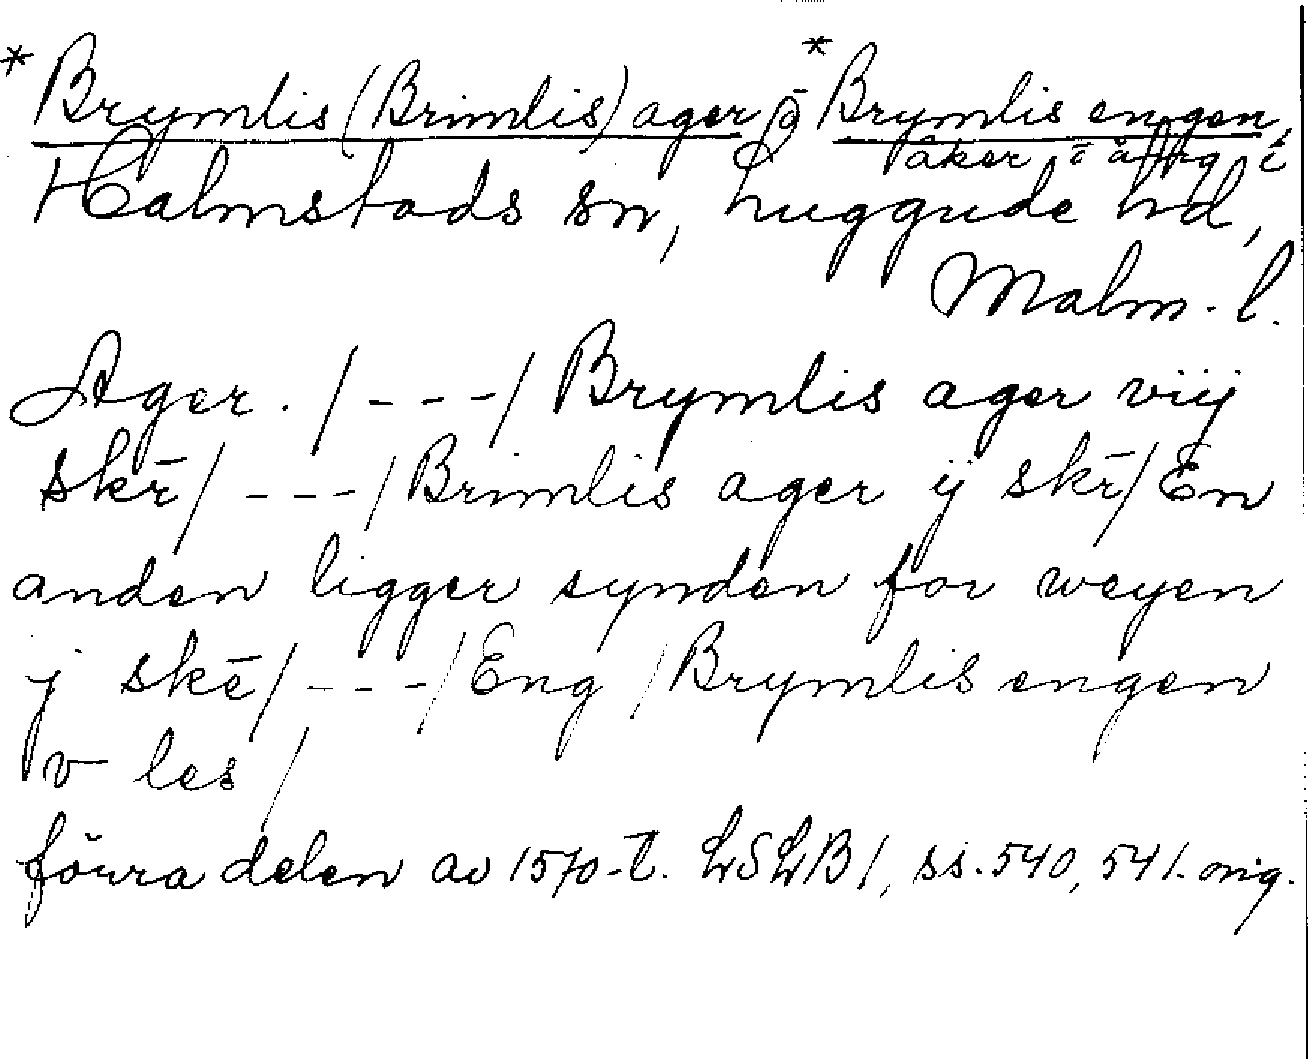 *Brymlis (Brimlis) ager o *Brymlis engen,
åker o äng i
Halmstads sn, Luggude hd,
Malm. l.
Ager. / - - - / Brymlis ager viij
skē / - - - / Brimlis ager ij skē / En
anden ligger synden for weyen
j skē / - - - / Eng / Brymlis engen
v les /
förra delen av 1570-t. LSLB 1, ss. 540, 541. orig.